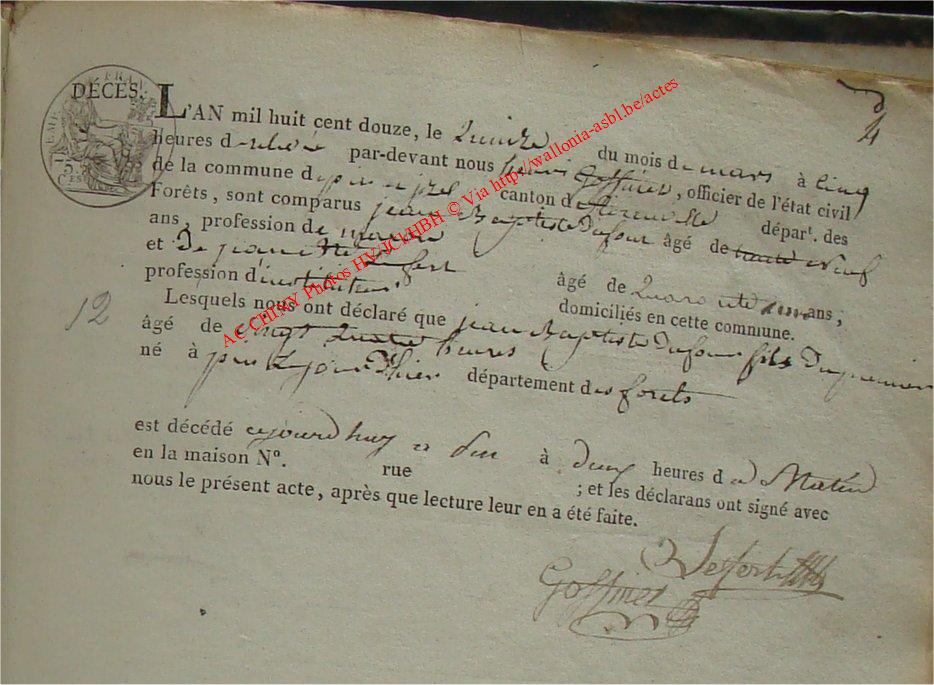 DÉCÈS.
L'AN mil huit cent douze, le Quinze du mois de mars à Cinq
heures de relevé par-devant nous henri Goffinet, officier de l'état civil
de la commune d canton de florenville départ. des
Forêts, sont comparus jean Baptiste Dufour âgé de trente neuf
ans, profession de
et âgé de Quarante ans;
profession d'instituteur domiciliés en cette commune.
12
Lesquels nous ont déclaré que jean Baptiste Dufour fils du premier
âgé de vingt Quatre heures
né à le jour d'hier département des forets
est décédé à deux heures d Matin
en la maison N°. rue ; et les déclarans ont signé avec
nous le présent acte, après que lecture leur en a été faite.
Goffinet
AC CHINY Photos HV/JCL/HBH © Via http://wallonia-asbl.be/actes